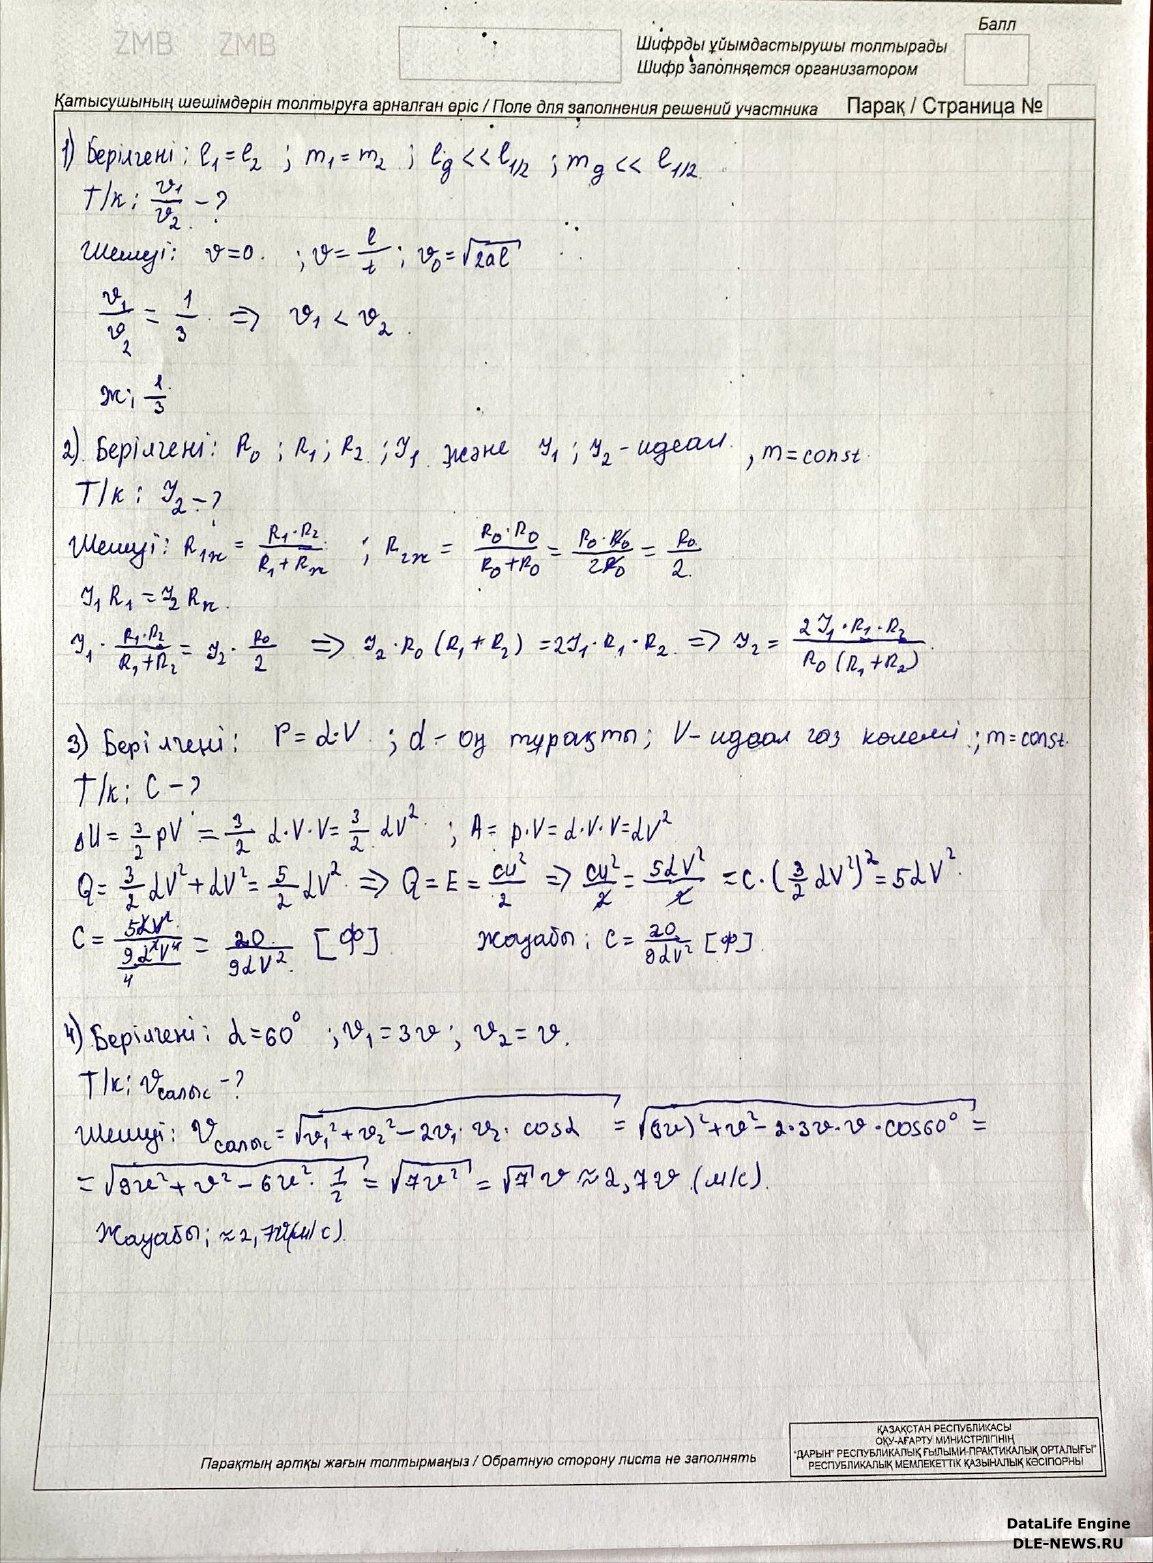 ZMB ZMB
Балл
Шифрды ұйымдастырушы толтырады
Шифр заполняется организатором
Қатысушының шешімдерін толтыруға арналған өріс / Поле для заполнения решений участника Парақ / Страница №
1) Берілгені: l₁=l₂ ; m₁=m₂ ; lg<<l₁/₂ ; mg<<l₁/₂
Т/к: υ₁/υ₂ - ?
Шешуі: υ=0 ; υ=l/t ; υ₀=√2al
υ₁/υ₂ = 1/3 => υ₁ < υ₂
Ж: 1/3
2) Берілгені: R₀ ; R₁; R₂ ; I₁ және I₁ ; I₂ - идеал , m=const
Т/к: I₂ - ?
Шешуі: R₁ж = R₁·R₂/R₁+Rж ; R₂ж = R₀·R₀/R₀+R₀ = R₀·R₀/2R₀ = R₀/2
I₁R₁=I₂Rж
I₁ · R₁·R₂/R₁+R₂ = I₂ · R₀/2 => I₂·R₀(R₁+R₂)=2I₁·R₁·R₂ => I₂ = 2I₁·R₁·R₂/R₀(R₁+R₂)
3) Берілгені: P=α·V ; α - оң тұрақты; V-идеал газ көлемі ; m=const
Т/к: C - ?
ΔU = 3/2 pV = 3/2 α·V·V = 3/2 αV² ; A = p·V=α·V·V=αV²
Q = 3/2 αV²+αV² = 5/2 αV² => Q=E = cu²/2 => cu²/2 = 5αV²/2 = c·(3/2 αV²)² = 5αV²
C = 5αV²/(9α²V⁴/4) = 20/9αV² [Ф] Жауабы: C = 20/9αV² [Ф]
4) Берілгені: α=60° ; υ₁=3υ ; υ₂=υ.
Т/к: υсалыс - ?
Шешуі: υсалыс = √υ₁²+υ₂²-2υ₁·υ₂·cosα = √(3υ)²+υ²-2·3υ·υ·cos60° =
= √9υ²+υ²-6υ²·1/2 = √7υ² = √7υ ≈ 2,7υ (м/с).
Жауабы: ≈2,7υ(м/с)
Парақтың артқы жағын толтырмаңыз / Обратную сторону листа не заполнять
ҚАЗАҚСТАН РЕСПУБЛИКАСЫ
ОҚУ-АҒАРТУ МИНИСТРЛІГІНІҢ
"ДАРЫН" РЕСПУБЛИКАЛЫҚ ҒЫЛЫМИ-ПРАКТИКАЛЫҚ ОРТАЛЫҒЫ"
РЕСПУБЛИКАЛЫҚ МЕМЛЕКЕТТІК ҚАЗЫНАЛЫҚ КӘСІПОРНЫ
DataLife Engine
DLE-NEWS.RU